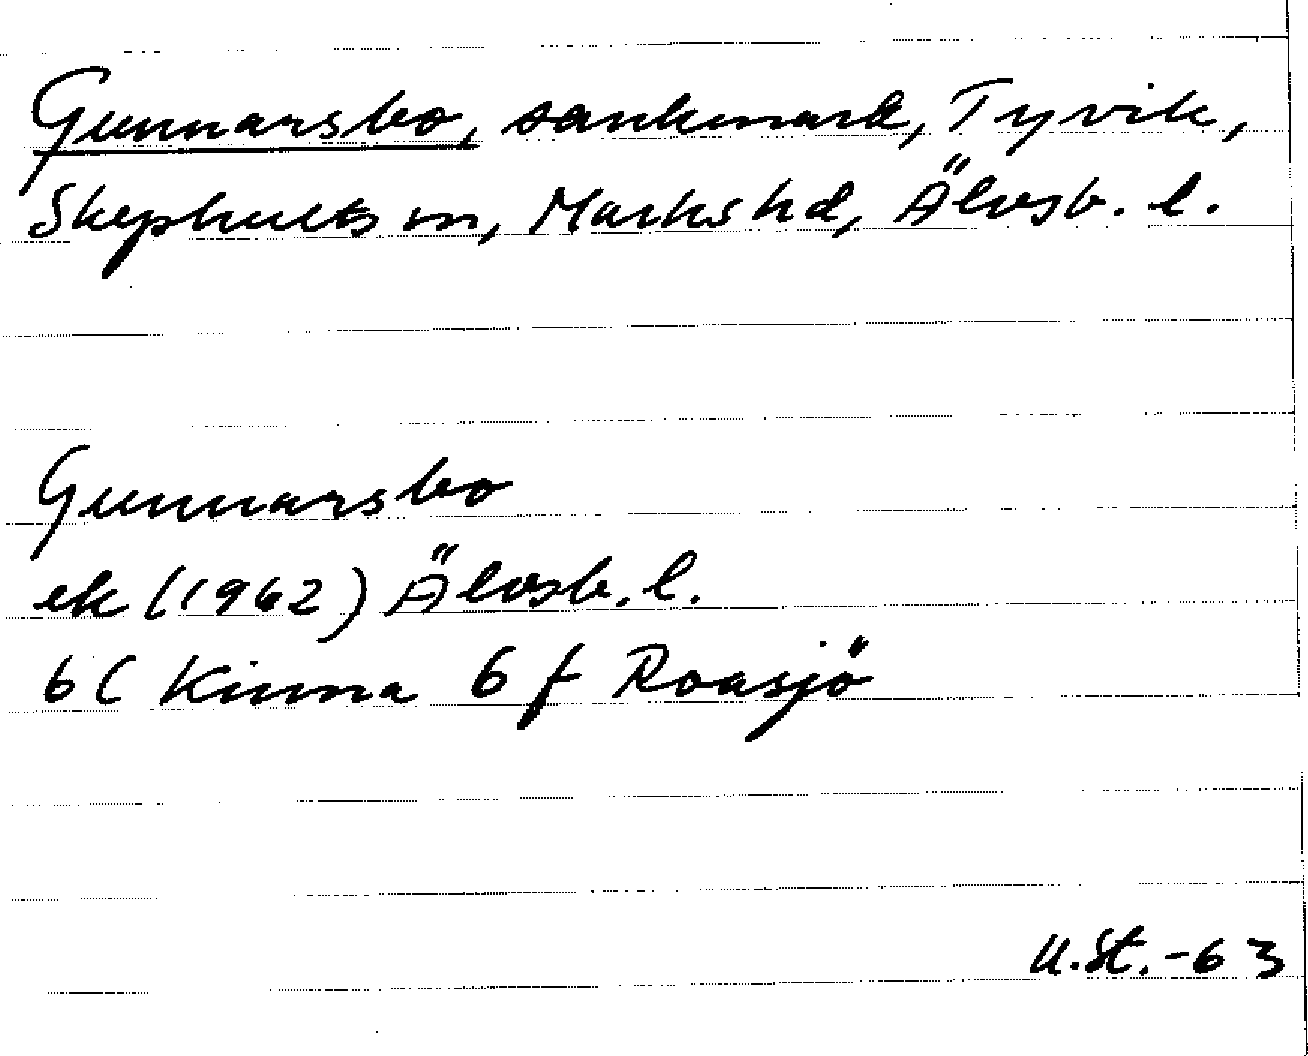 Gunnarsbo, sankmark, Tyvik,
Skephults sn, Marks hd, Älvsb. l.
Gunnarsbo
ek (1962) Älvsb. l.
6C Kinna 6 f Roasjö
U.St.-63